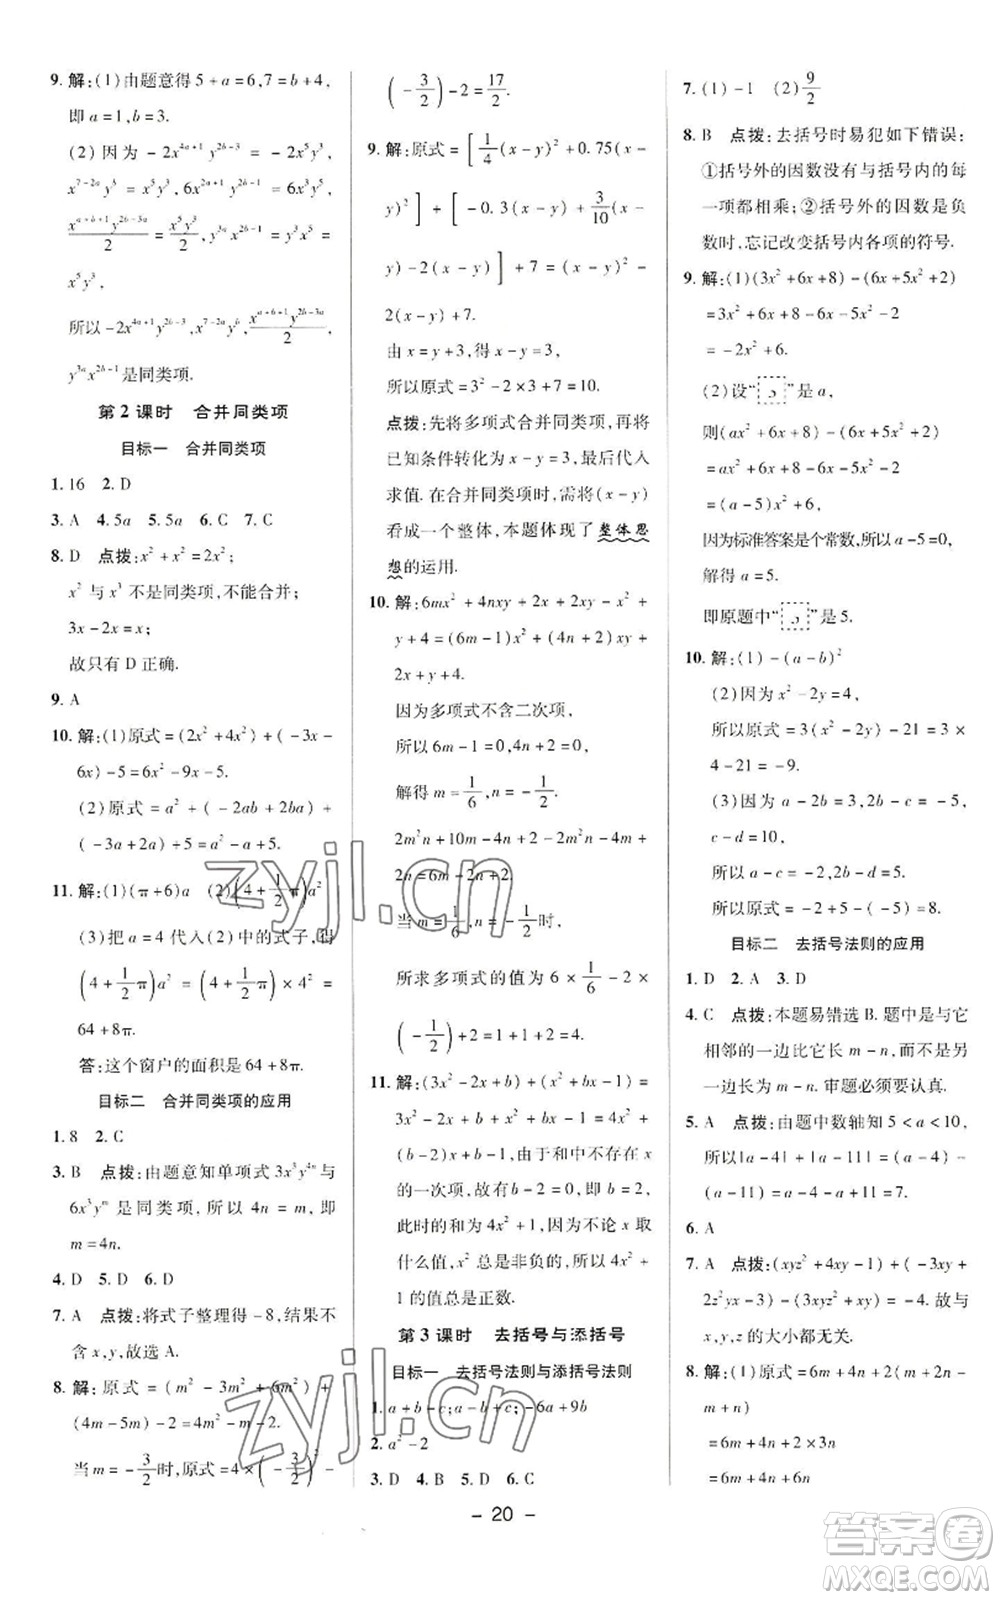 9. 解:(1)由题意得5+a=6,7=b+4,
即a=1,b=3.
(2)因为 -2x^{4a+1}y^{2b-3}=-2x^5y^3,
x^{7-2a}y^b=x^5y^3, 6x^{2a+1}y^{2b-3}=6x^5y^3,
\frac{x^{a+b+1}y^{2b-3a}}{2}=\frac{x^5y^3}{2}, y^{3a}x^{2b-1}=y^3x^5=
x^5y^3,
所以-2x^{4a+1}y^{2b-3}, x^{7-2a}y^b, \frac{x^{a+b+1}y^{2b-3a}}{2},
y^{3a}x^{2b-1}是同类项.
第2课时 合并同类项
目标一 合并同类项
1. 16 2. D
3. A 4. 5a 5. 5a 6. C 7. C
8. D 点拨:x²+x²=2x²;
x²与x³不是同类项,不能合并;
3x-2x=x;
故只有D正确.
9. A
10. 解:(1)原式=(2x²+4x²)+(-3x-
6x)-5=6x²-9x-5.
(2)原式=a²+(-2ab+2ba)+
(-3a+2a)+5=a²-a+5.
11. 解:(1)(π+6)a (2)(4+\frac{1}{2}π)a²
(3)把a=4代入(2)中的式子,得
(4+\frac{1}{2}π)a²=(4+\frac{1}{2}π)×4²=
64+8π.
答:这个窗户的面积是64+8π.
目标二 合并同类项的应用
1. 8 2. C
3. B 点拨:由题意知单项式3x³y^{4n}与
6x³y^m是同类项,所以4n=m,即
m=4n.
4. D 5. D 6. D
7. A 点拨:将式子整理得-8,结果不
含x,y,故选A.
8. 解:原式=(m²-m²+4m²)+
(4m-5m)-2=4m²-m-2.
当m=-\frac{3}{2}时,原式=4×(-\frac{3}{2})²-
(-\frac{3}{2})-2=\frac{17}{2}.
9. 解:原式=[\frac{1}{4}(x-y)²+0.75(x-
y)²]+[-0.3(x-y)+\frac{3}{10}(x-
y)-2(x-y)]+7=(x-y)²-
2(x-y)+7.
由x=y+3,得x-y=3,
所以原式=3²-2×3+7=10.
点拨:先将多项式合并同类项,再将
已知条件转化为x-y=3,最后代入
求值.在合并同类项时,需将(x-y)
看成一个整体,本题体现了整体思
想的运用.
10. 解:6mx²+4nxy+2x+2xy-x²+
y+4=(6m-1)x²+(4n+2)xy+
2x+y+4.
因为多项式不含二次项,
所以6m-1=0,4n+2=0.
解得m=\frac{1}{6},n=-\frac{1}{2}.
2m²n+10m-4n+2-2m²n-4m+
2n=6m-2n+2.
当m=\frac{1}{6},n=-\frac{1}{2}时,
所求多项式的值为6×\frac{1}{6}-2×
(-\frac{1}{2})+2=1+1+2=4.
11. 解:(3x²-2x+1)+(x²+bx)=
3x²-2x+1+x²+bx=4x²+
(b-2)x+1,由于和中不存在含x
的一次项,故有b-2=0,即b=2,
此时的和为4x²+1,因为不论x取
什么值,x²总是非负的,所以4x²+
1的值总是正数.
第3课时 去括号与添括号
目标一 去括号法则与添括号法则
1. a+b-c;a-b+c;-6a+9b
2. a²-2
3. D 4. B 5. D 6. C
7. (1)-1 (2)\frac{9}{2}
8. B 点拨:去括号时易犯如下错误:
①括号外的因数没有与括号内的每
一项都相乘;②括号外的因数是负
数时,忘记改变括号内各项的符号.
9. 解:(1)(3x²+6x+8)-(6x+5x²+2)
=3x²+6x+8-6x-5x²-2
=-2x²+6.
(2)设“5”是a,
则(ax²+6x+8)-(6x+5x²+2)
=ax²+6x+8-6x-5x²-2
=(a-5)x²+6,
因为标准答案是个常数,所以a-5=0,
解得a=5.
即原题中“5”是5.
10. 解:(1)-(a-b)²
(2)因为x²-2y=4,
所以原式=3(x²-2y)-21=3×
4-21=-9.
(3)因为a-2b=3,2b-c=-5,
c-d=10,
所以a-c=-2,2b-d=5.
所以原式=-2+5-(-5)=8.
目标二 去括号法则的应用
1. D 2. A 3. D
4. C 点拨:本题易错选B.题中是与它
相邻的一边比它长m-n,而不是另
一边长为m-n.审题必须要认真.
5. A 点拨:由题中数轴知5<a<10,
所以|a-4|+|a-11|=(a-4)-
(a-11)=a-4-a+11=7.
6. A
7. A 点拨:(xyz²+4yx-1)+(-3xy+
2z²yx-3)-(3xyz²+xy)=-4.故与
x,y,z的大小都无关.
8. 解:(1)原式=6m+4n+(2m+2n-
m+n)
=6m+4n+2×3n
=6m+4n+6n
- 20 -
zyjl.cn
zyjl.cn
答案圈
MXQE.COM